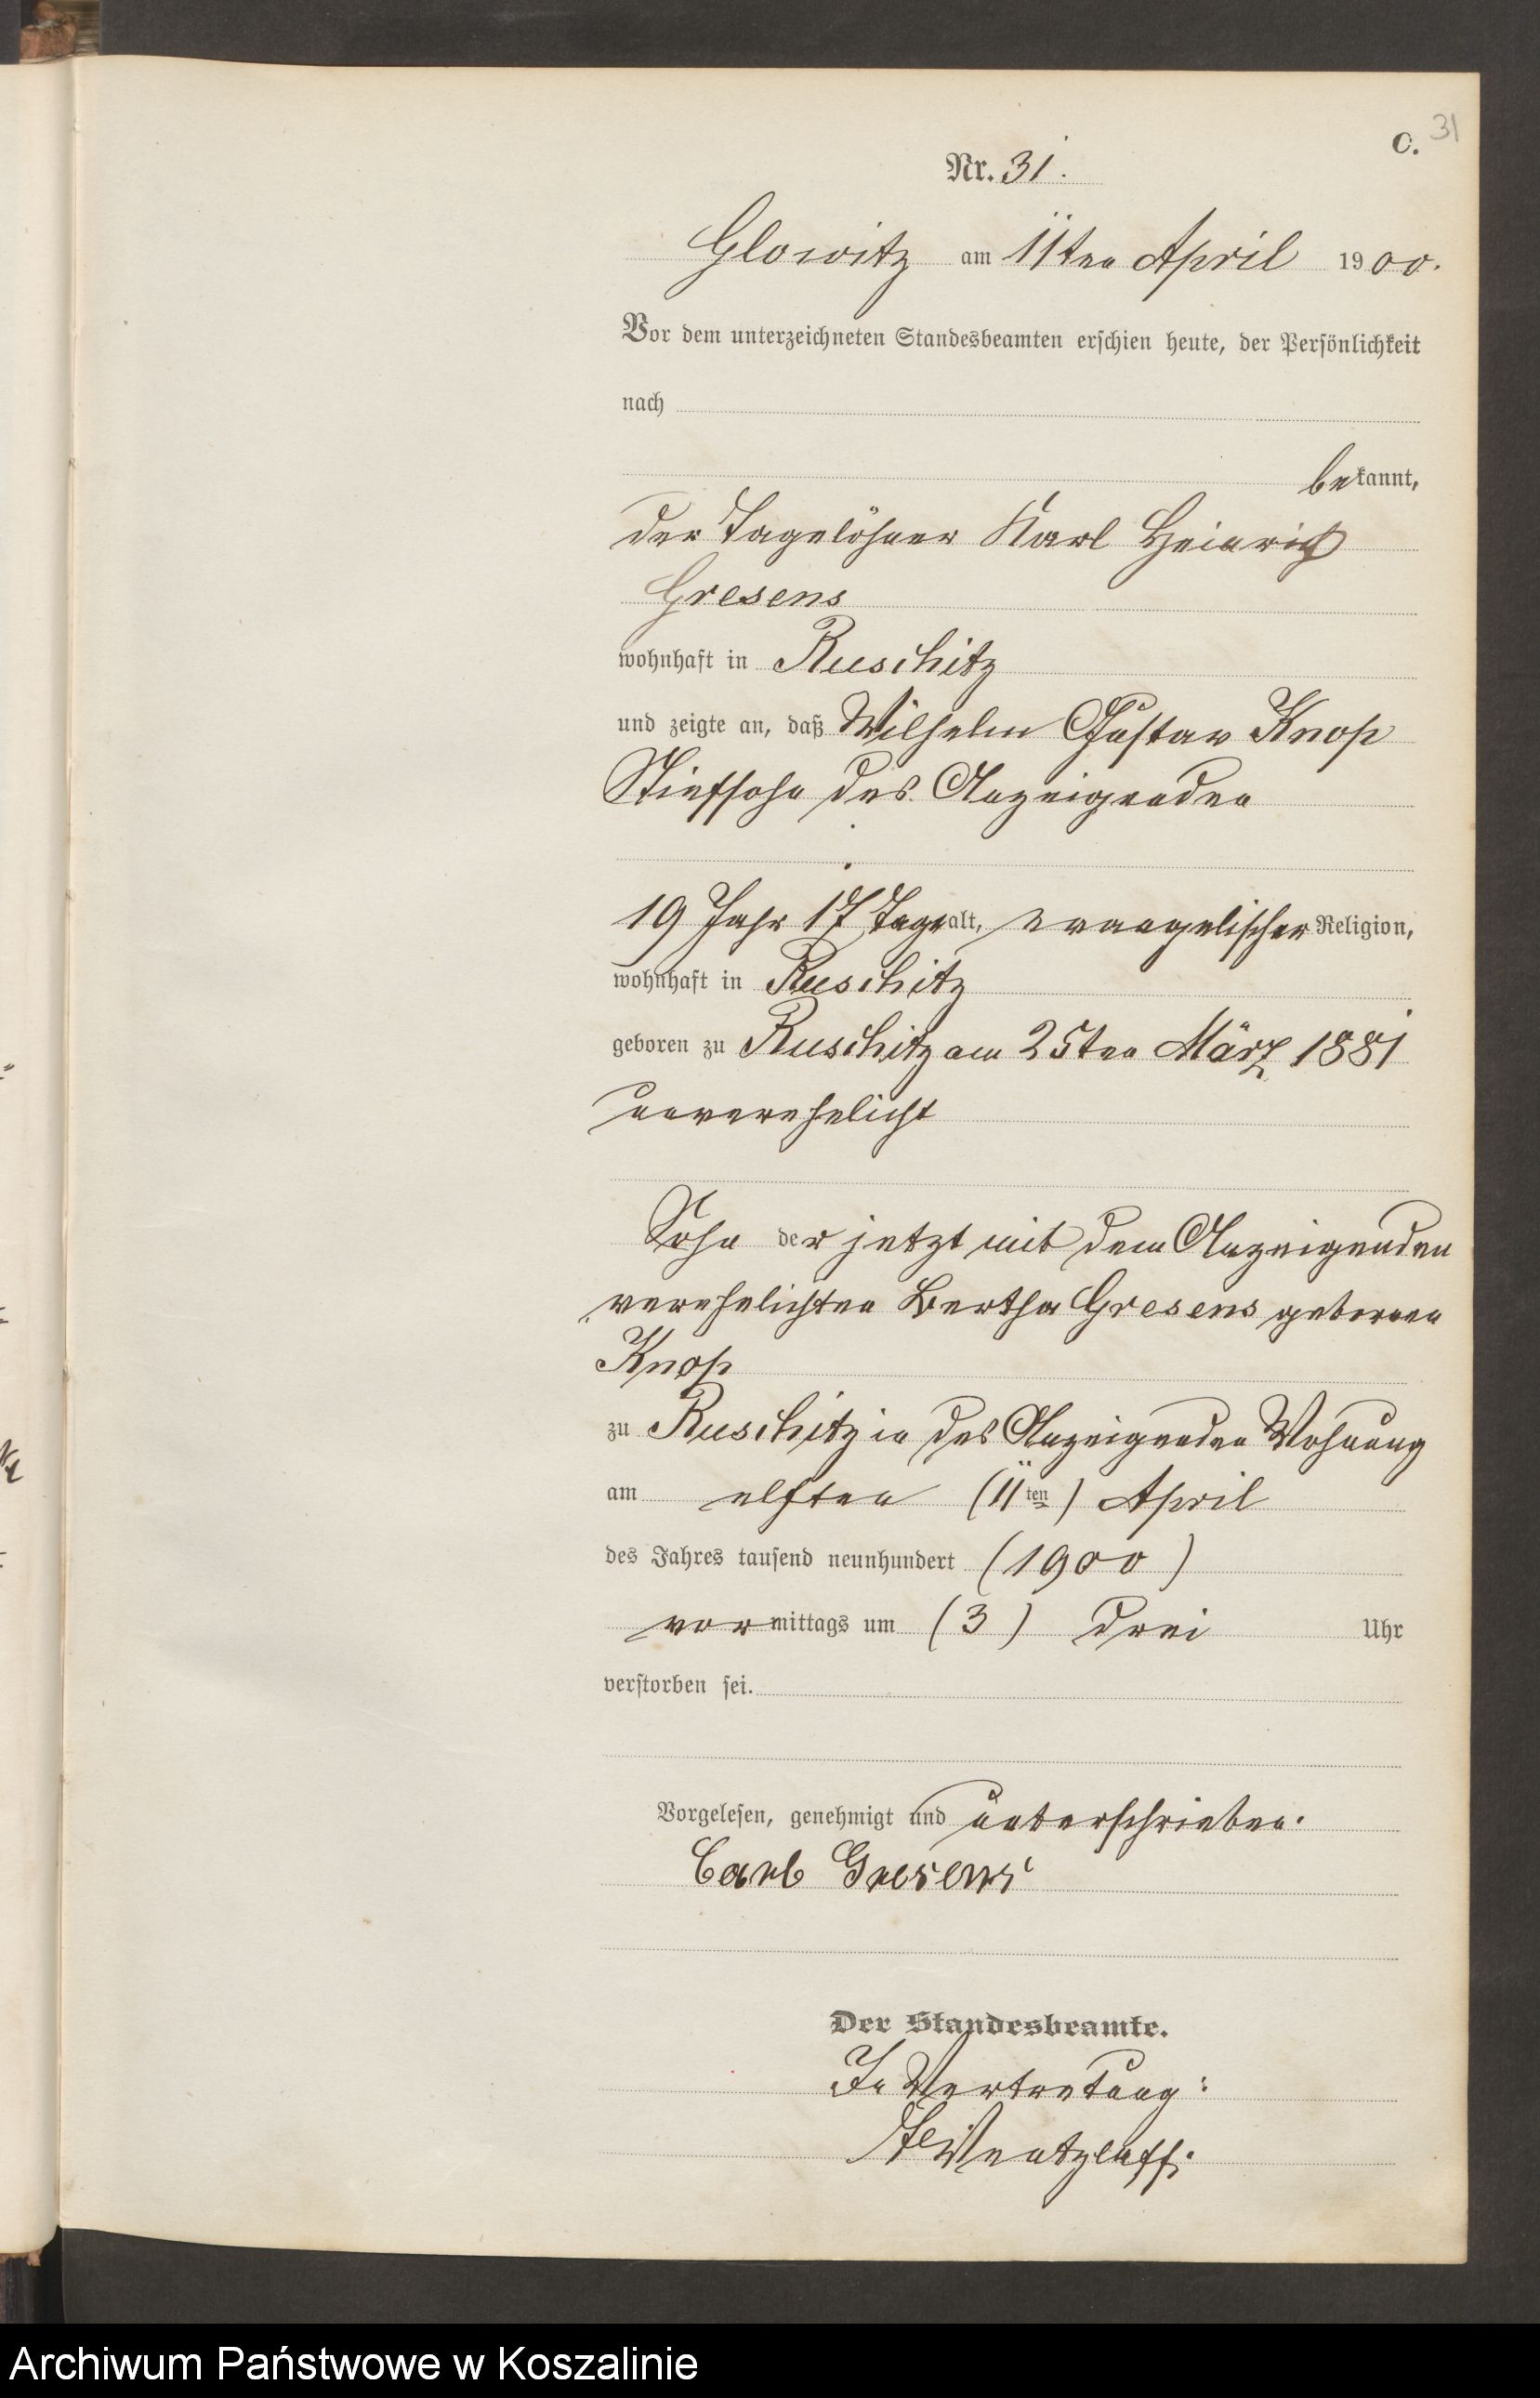 31
C.
Nr. 31.
Glowitz am 11ten April 1900.
Vor dem unterzeichneten Standesbeamten erschien heute, der Persönlichkeit
nach
bekannt,
der Tagelöhner Karl Heinrich
Gresens
wohnhaft in Ruschitz
und zeigte an, daß Wilhelm Gustav Knop
Stiefsohn des Anzeigenden
19 Jahr 17 Tage alt, evangelischer Religion,
wohnhaft in Ruschitz
geboren zu Ruschitz am 25ten März 1881
unverehelicht
Sohn der jetzt mit dem Anzeigenden
verehelichten Bertha Gresens geborenen
Knop
zu Ruschitz in des Anzeigenden Wohnung
am elften (11ten) April
des Jahres tausend neunhundert (1900)
vormittags um (3) drei Uhr
verstorben sei.
Vorgelesen, genehmigt und unterschrieben.
Carl Gresens
Der Standesbeamte.
In Vertretung:
Wentzlaff.
Archiwum Państwowe w Koszalinie